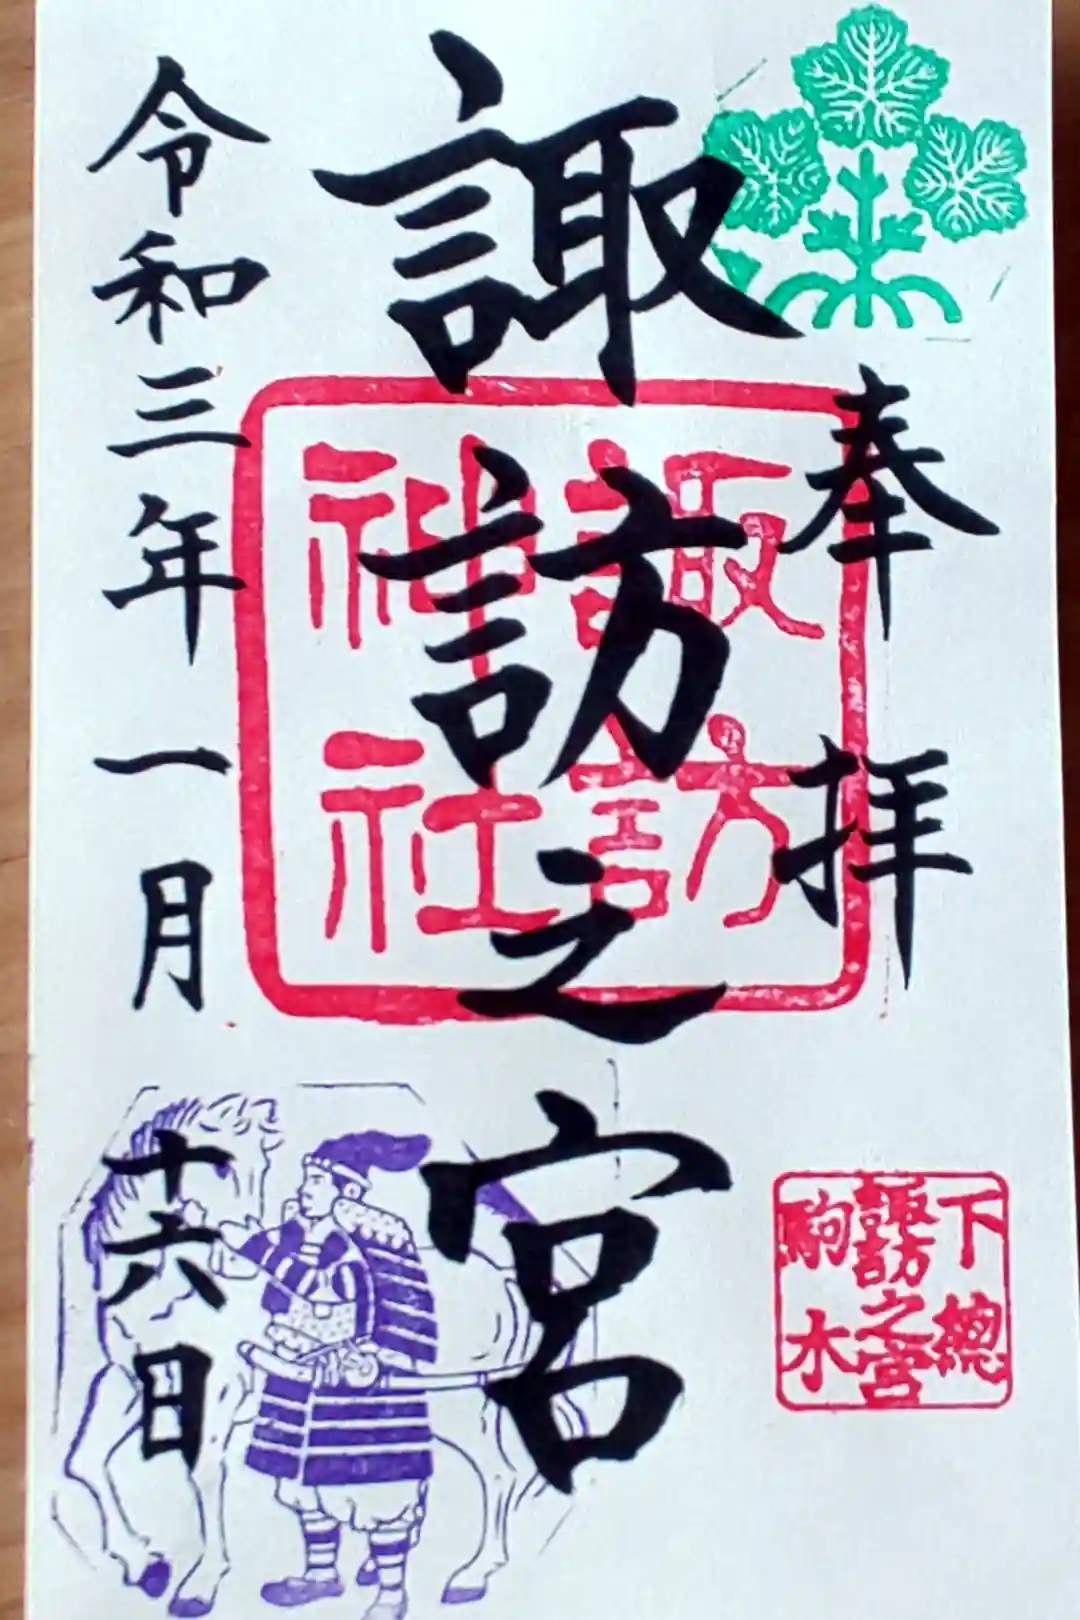 奉拝
諏訪之宮
諏訪
神社
令和三年一月十六日
下總
諏訪之宮
駒木